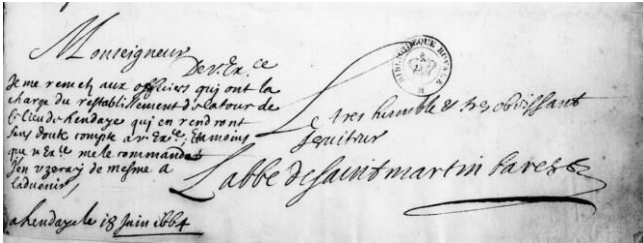 Monseigneur
De v. Ex.ce
Je me remetz aux officiers qui ont la
charge du restablissement de la tour de
ce lieu de hendaye qui en rendront
sans doute compte a v. Ex.ce, Et a moins
que v. Ex.ce me le commande
J'en vzeray de mesme a
Laduenir,
a hendaye le 18 Juin 1664
Le tres humble & tres obeissant
seruiteur
L'abbé de Saint martin
BIBLIOTHEQUE ROYALE